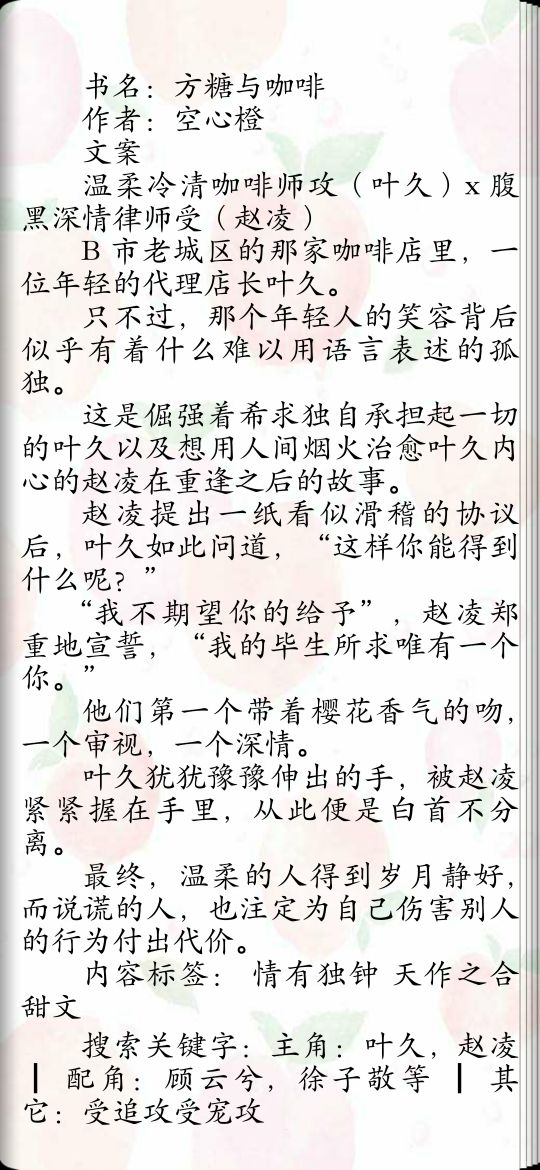 书名：方糖与咖啡
作者：空心橙
文案
温柔冷清咖啡师攻（叶久）x 腹
黑深情律师受（赵凌）
B 市老城区的那家咖啡店里，一
位年轻的代理店长叶久。
只不过，那个年轻人的笑容背后
似乎有着什么难以用语言表述的孤
独。
这是倔强着希求独自承担起一切
的叶久以及想用人间烟火治愈叶久内
心的赵凌在重逢之后的故事。
赵凌提出一纸看似滑稽的协议
后，叶久如此问道，“这样你能得到
什么呢？”
“我不期望你的给予”，赵凌郑
重地宣誓，“我的毕生所求唯有一个
你。”
他们第一个带着樱花香气的吻,
一个审视，一个深情。
叶久犹犹豫豫伸出的手，被赵凌
紧紧握在手里，从此便是白首不分
离。
最终，温柔的人得到岁月静好,
而说谎的人，也注定为自己伤害别人
的行为付出代价。
内容标签： 情有独钟 天作之合
甜文
搜索关键字：主角：叶久，赵凌
┃ 配角：顾云兮，徐子敬等 ┃ 其
它：受追攻受宠攻